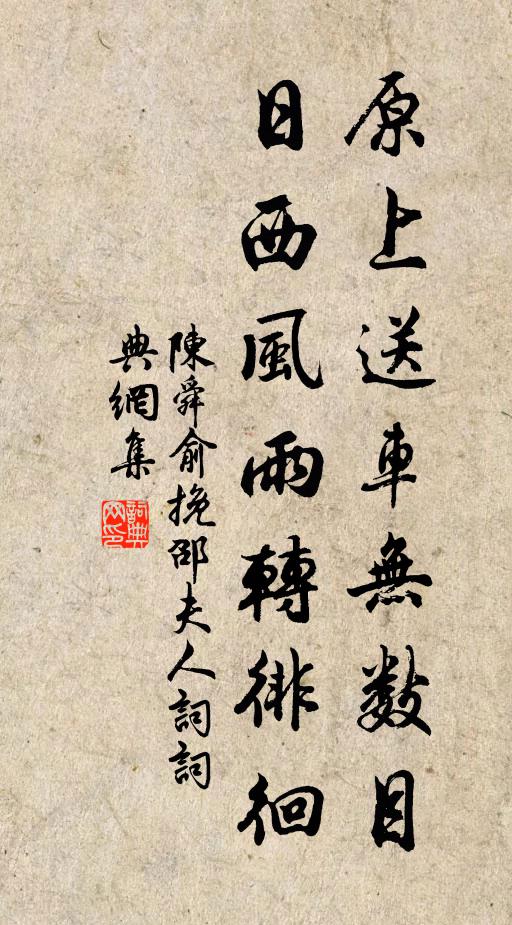 原上送車無數目
日西風雨轉徘徊
陳舜俞挽邵夫人詞詞
典網集
詞典網印